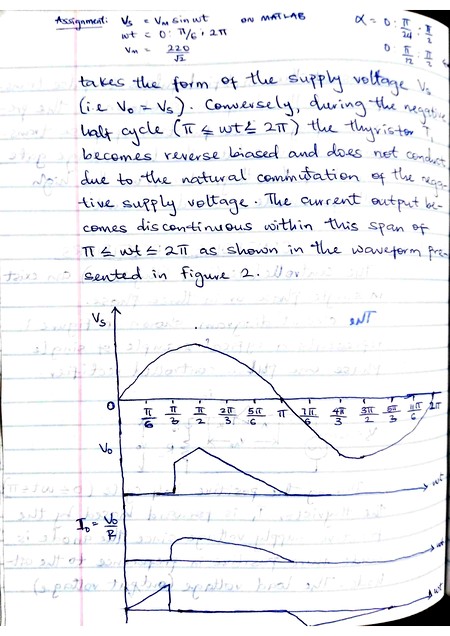 Assignment: Vs = Vm sin wt ON MATLAB α = 0 : π/24 : π/2
wt = 0 : π/6 : 2π 0 : π/12 : π/2
Vm = 220/√2
takes the form of the supply voltage Vs
(i.e Vo = Vs). Conversely, during the negative
half cycle (π ≤ wt ≤ 2π) the thyristor T
becomes reverse biased and does not conduct
due to the natural commutation of the nega-
tive supply voltage. The current output be-
comes discontinuous within this span of
π ≤ wt ≤ 2π as shown in the waveform pre-
sented in figure 2.
Vs
0 π/6 π/3 π/2 2π/3 5π/6 π 7π/6 4π/3 3π/2 5π/3 11π/6 2π
Vo
wt
Io = Vo/R
wt
wt